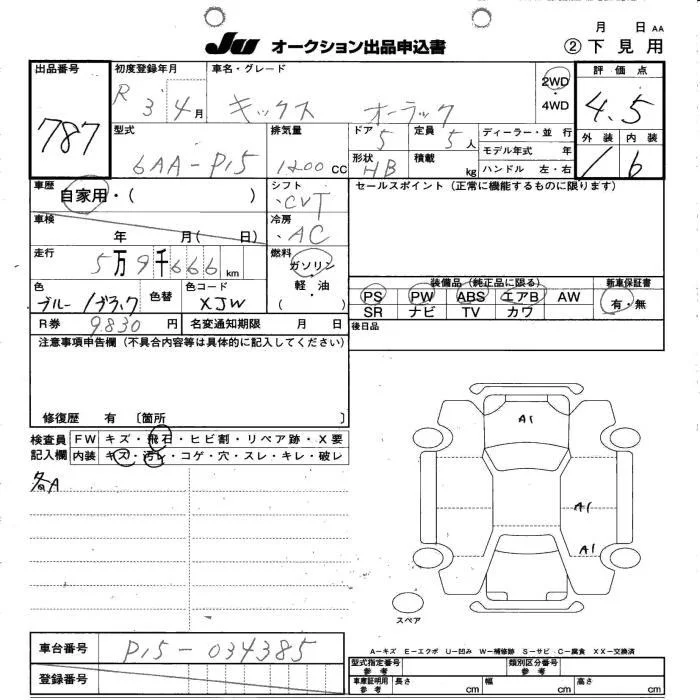 月 日 AA
JU オークション出品申込書 ② 下見用
出品番号 787
初度登録年月 R 3 4月
車名・グレード キックス オーラック
2WD・4WD
評価点 4.5
外装 内装
1 6
型式 6AA-P15
排気量 1200 CC
ドア 5
定員 5人
形状 HB
積載 kg
ディーラー・並行
モデル年式 年
ハンドル 左・右
車歴 自家用・( )
シフト ・CVT
セールスポイント (正常に機能するものに限ります)
車検 年 月( 日)
冷房 ・AC
走行 5万9千666km
燃料 ガソリン・軽油 ( )
色 ブルー/ブラック
色替
色コード XJW
装備品 (純正品に限る)
PS PW ABS エアB AW
SR ナビ TV カワ
新車保証書 有・無
R券 9830円
名変通知期限 月 日
後日品
注意事項申告欄 (不具合内容等は具体的に記入してください)
修復歴 有 〔箇所 〕
検査員記入欄
FW キズ・飛石・ヒビ割・リペア跡・X要
内装 キズ・汚レ・コゲ・穴・スレ・キレ・破レ
各A
A1
A1
A1
スペア
車台番号 P15-034385
登録番号
A-キズ E-エクボ U-凹み W-補修跡 S-サビ C-腐食 XX-交換済
型式指定番号 参考
類別区分番号 参考
車庫証明用 参考 長さ cm 幅 cm 高さ cm